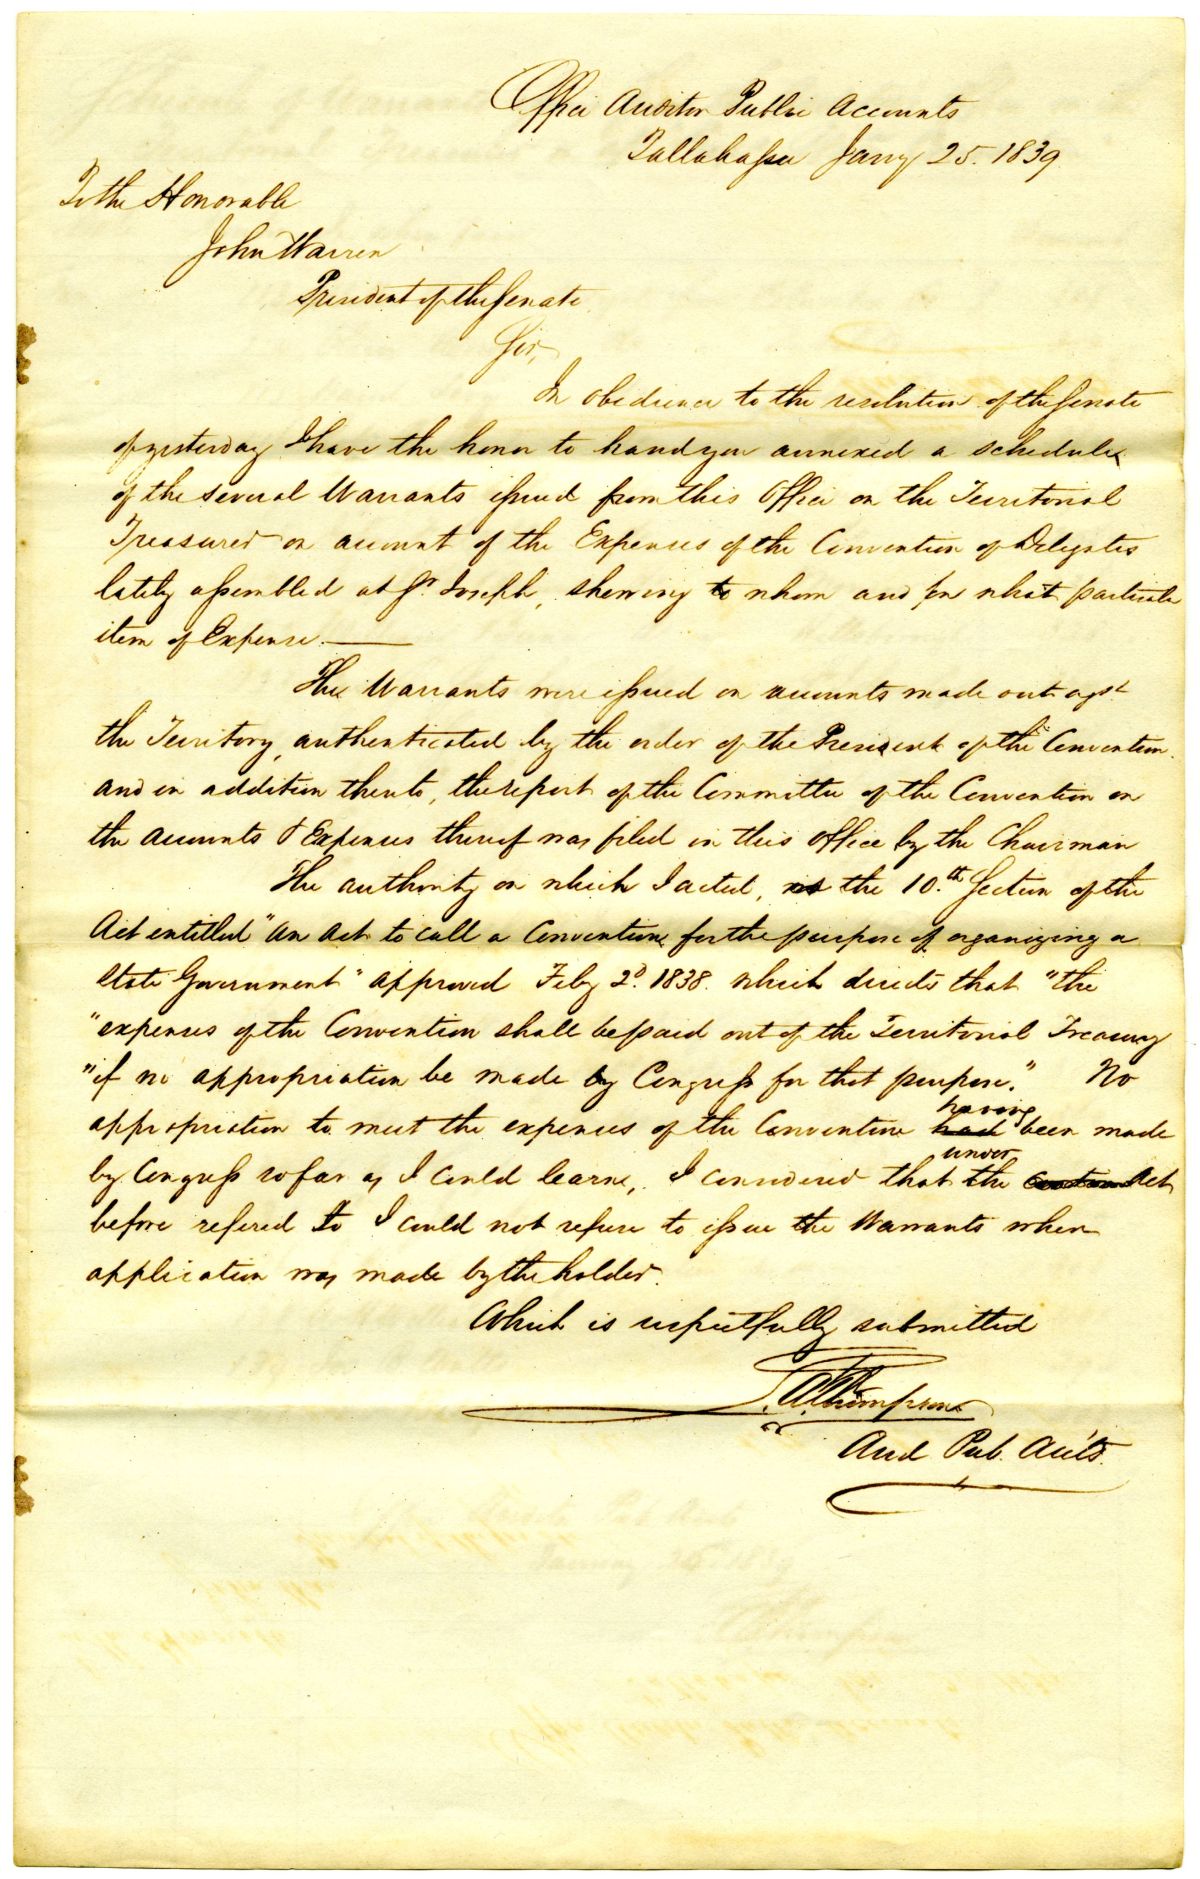 Office Auditor Public Accounts
Tallahassee Jany 25. 1839
To the Honorable
John Warren
President of the Senate
Sir,
In obedience to the resolution of the Senate
of yesterday I have the honor to hand you annexed a schedule
of the several Warrants issued from this Office on the Territorial
Treasurer on account of the Expenses of the Convention of Delegates
lately assembled at St. Joseph, shewing to whom and for what particular
item of Expense.
The Warrants were issued on accounts made out agst
the Territory, authenticated by the order of the President of the Convention.
and in addition thereto, the report of the Committee of the Convention on
the accounts & Expenses thereof was filed in this office by the Chairman
The authority on which I acted, is the 10.th Section of the
Act entitled "An Act to call a Convention for the purpose of organizing a
State Government" approved Feby 2d. 1838. which directs that "the
"expenses of the Convention shall be paid out of the Territorial Treasury
"if no appropriation be made by Congress for that purpose." No
appropriation to meet the expenses of the Convention had having been made
by Congress so far as I could learn, I considered that under the Act
before refered to I could not refuse to issue the Warrants when
application was made by the holder.
Which is respectfully submitted
Thompson
Aud Pub. Accts.